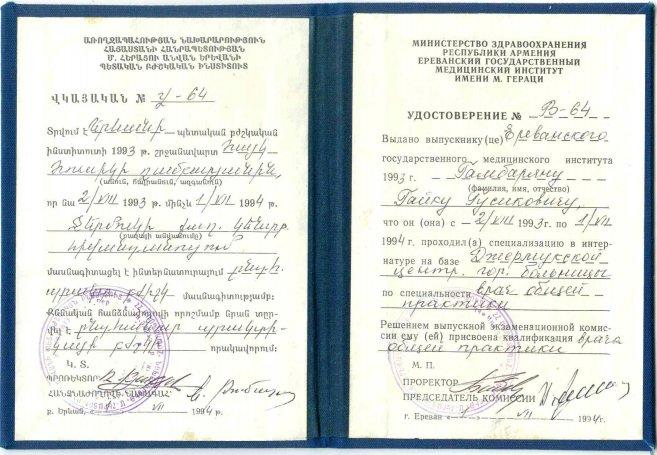 ԱՌՈՂՋԱՊԱՀՈՒԹՅԱՆ ՆԱԽԱՐԱՐՈՒԹՅՈՒՆ
ՀԱՅԱՍՏԱՆԻ ՀԱՆՐԱՊԵՏՈՒԹՅԱՆ
Մ. ՀԵՐԱՑՈՒ ԱՆՎԱՆ ԵՐԵՎԱՆԻ
ՊԵՏԱԿԱՆ ԲԺՇԿԱԿԱՆ ԻՆՍՏԻՏՈՒՏ
ՎԿԱՅԱԿԱՆ № 64
Տրվում է Երևանի պետական բժշկական
ինստիտուտի 1993 թ. շրջանավարտ Հայկ
(անուն, հայրանուն, ազգանուն)
որ նա 2/VIII 1993 թ. մինչև 1/VII 1994 թ.
Ջերմուկի քաղ. կենտր.
(բազայի անվանումը)
հիվանդանոցում
մասնագիտացել է ինտերնատուրայում ընդհ.
բժիշկ մասնագիտությամբ:
Քննական հանձնաժողովի որոշմամբ նրան տըր-
վել է ընդհանուր պրակտի-
կայի բժշկի որակավորում:
Կ. Տ.
ՊՐՈՌԵԿՏՈՐ
ՀԱՆՁՆԱԺՈՂՈՎԻ ՆԱԽԱԳԱՀ
ք. Երևան, « » VII 1994 թ.
МИНИСТЕРСТВО ЗДРАВООХРАНЕНИЯ
РЕСПУБЛИКИ АРМЕНИЯ
ЕРЕВАНСКИЙ ГОСУДАРСТВЕННЫЙ
МЕДИЦИНСКИЙ ИНСТИТУТ
ИМЕНИ М. ГЕРАЦИ
УДОСТОВЕРЕНИЕ № В-64
Выдано выпускнику(це) Ереванского
государственного медицинского института
1993 г. Гамбаряну
(фамилия, имя, отчество)
Гайку Гусиковичу,
что он (она) с 2/VIII 1993 г. по 1/VII
1994 г. проходил(а) специализацию в интер-
натуре на базе Джермукской
центр. гор. больницы
по специальности врач общей
практики
Решением выпускной экзаменационной комис-
сии ему (ей) присвоена квалификация врача
общей практики
М. П.
ПРОРЕКТОР
ПРЕДСЕДАТЕЛЬ КОМИССИИ
г. Ереван « » VII 1994 г.